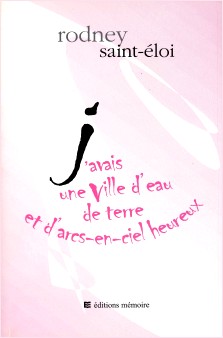 rodney
saint-éloi
j'avais
une Ville d'eau
de terre
et d'arcs-en-ciel heureux
éditions mémoire